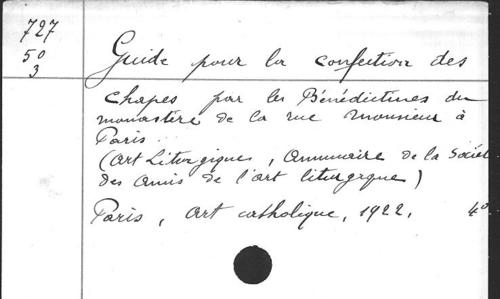 727
50
3
Guide pour la confection des
chapes par les Bénédictines du
monastère de la rue Monsieur à
Paris
(Art Liturgique, Annuaire de la Sociét
des Amis de l'art liturgique)
Paris, Art catholique, 1922. 4º